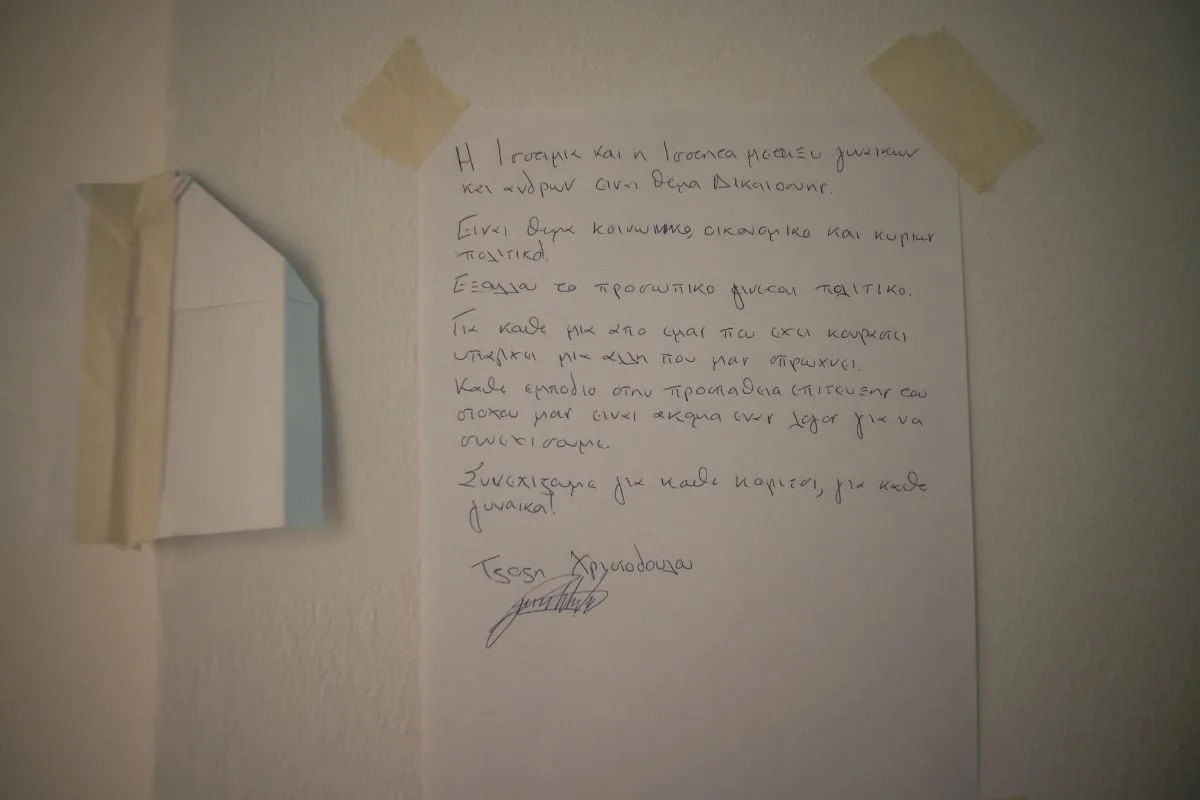 Η Ισοτιμια και η Ισοτητα μεταξυ γυναικων
και ανδρων ειναι θεμα Δικαιοσυνης.
Ειναι θεμα κοινωνικο, οικονομικο και κυριως
πολιτικο.
Εξαλλου το προσωπικο γινεται πολιτικο.
Για καθε μια απο εμας που εχει κουραστει
υπαρχει μια αλλη που μας σπρωχνει.
Καθε εμποδιο στην προσπαθεια επιτευξης του
στοχου μας ειναι ακομα ενας λογος για να
συνεχισουμε.
Συνεχιζουμε για καθε κοριτσι, για καθε
γυναικα!
Χρυσοδουλα